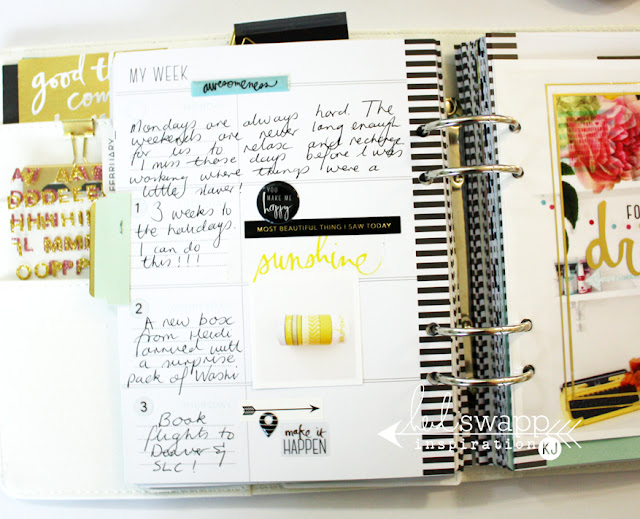 good th
com
MY WEEK
awesomeness
Mondays are always hard. The
weekends are never long enough
for us to relax and recharge
I miss those days before I was
working where things were a
little slower!
FEBRUARY
1
3 weeks to
the holidays.
I can do
this!!!
YOU
MAKE ME
happy
MOST BEAUTIFUL THING I SAW TODAY
sunshine
2
A new box
from Heidi
arrived with
a surprise
pack of Washi
3
Book
flights to
Denver &
SLC!
make it
HAPPEN
FO
dr
heidi swapp
inspiration
KJ